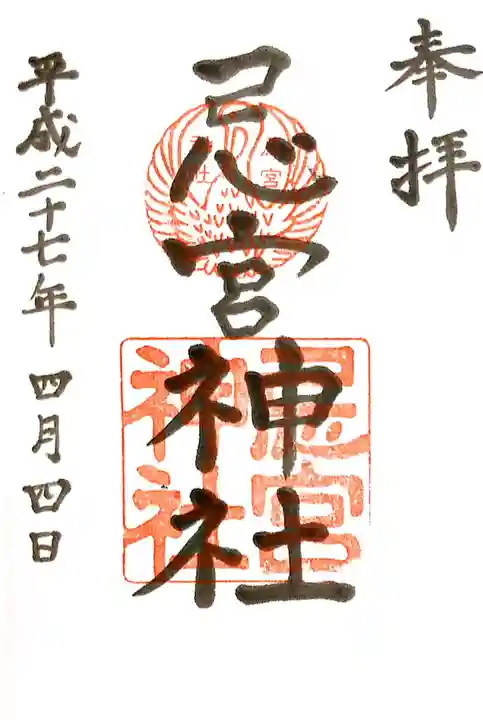 奉拝
忌宮神社
平成二十七年四月四日
忌宮
神社